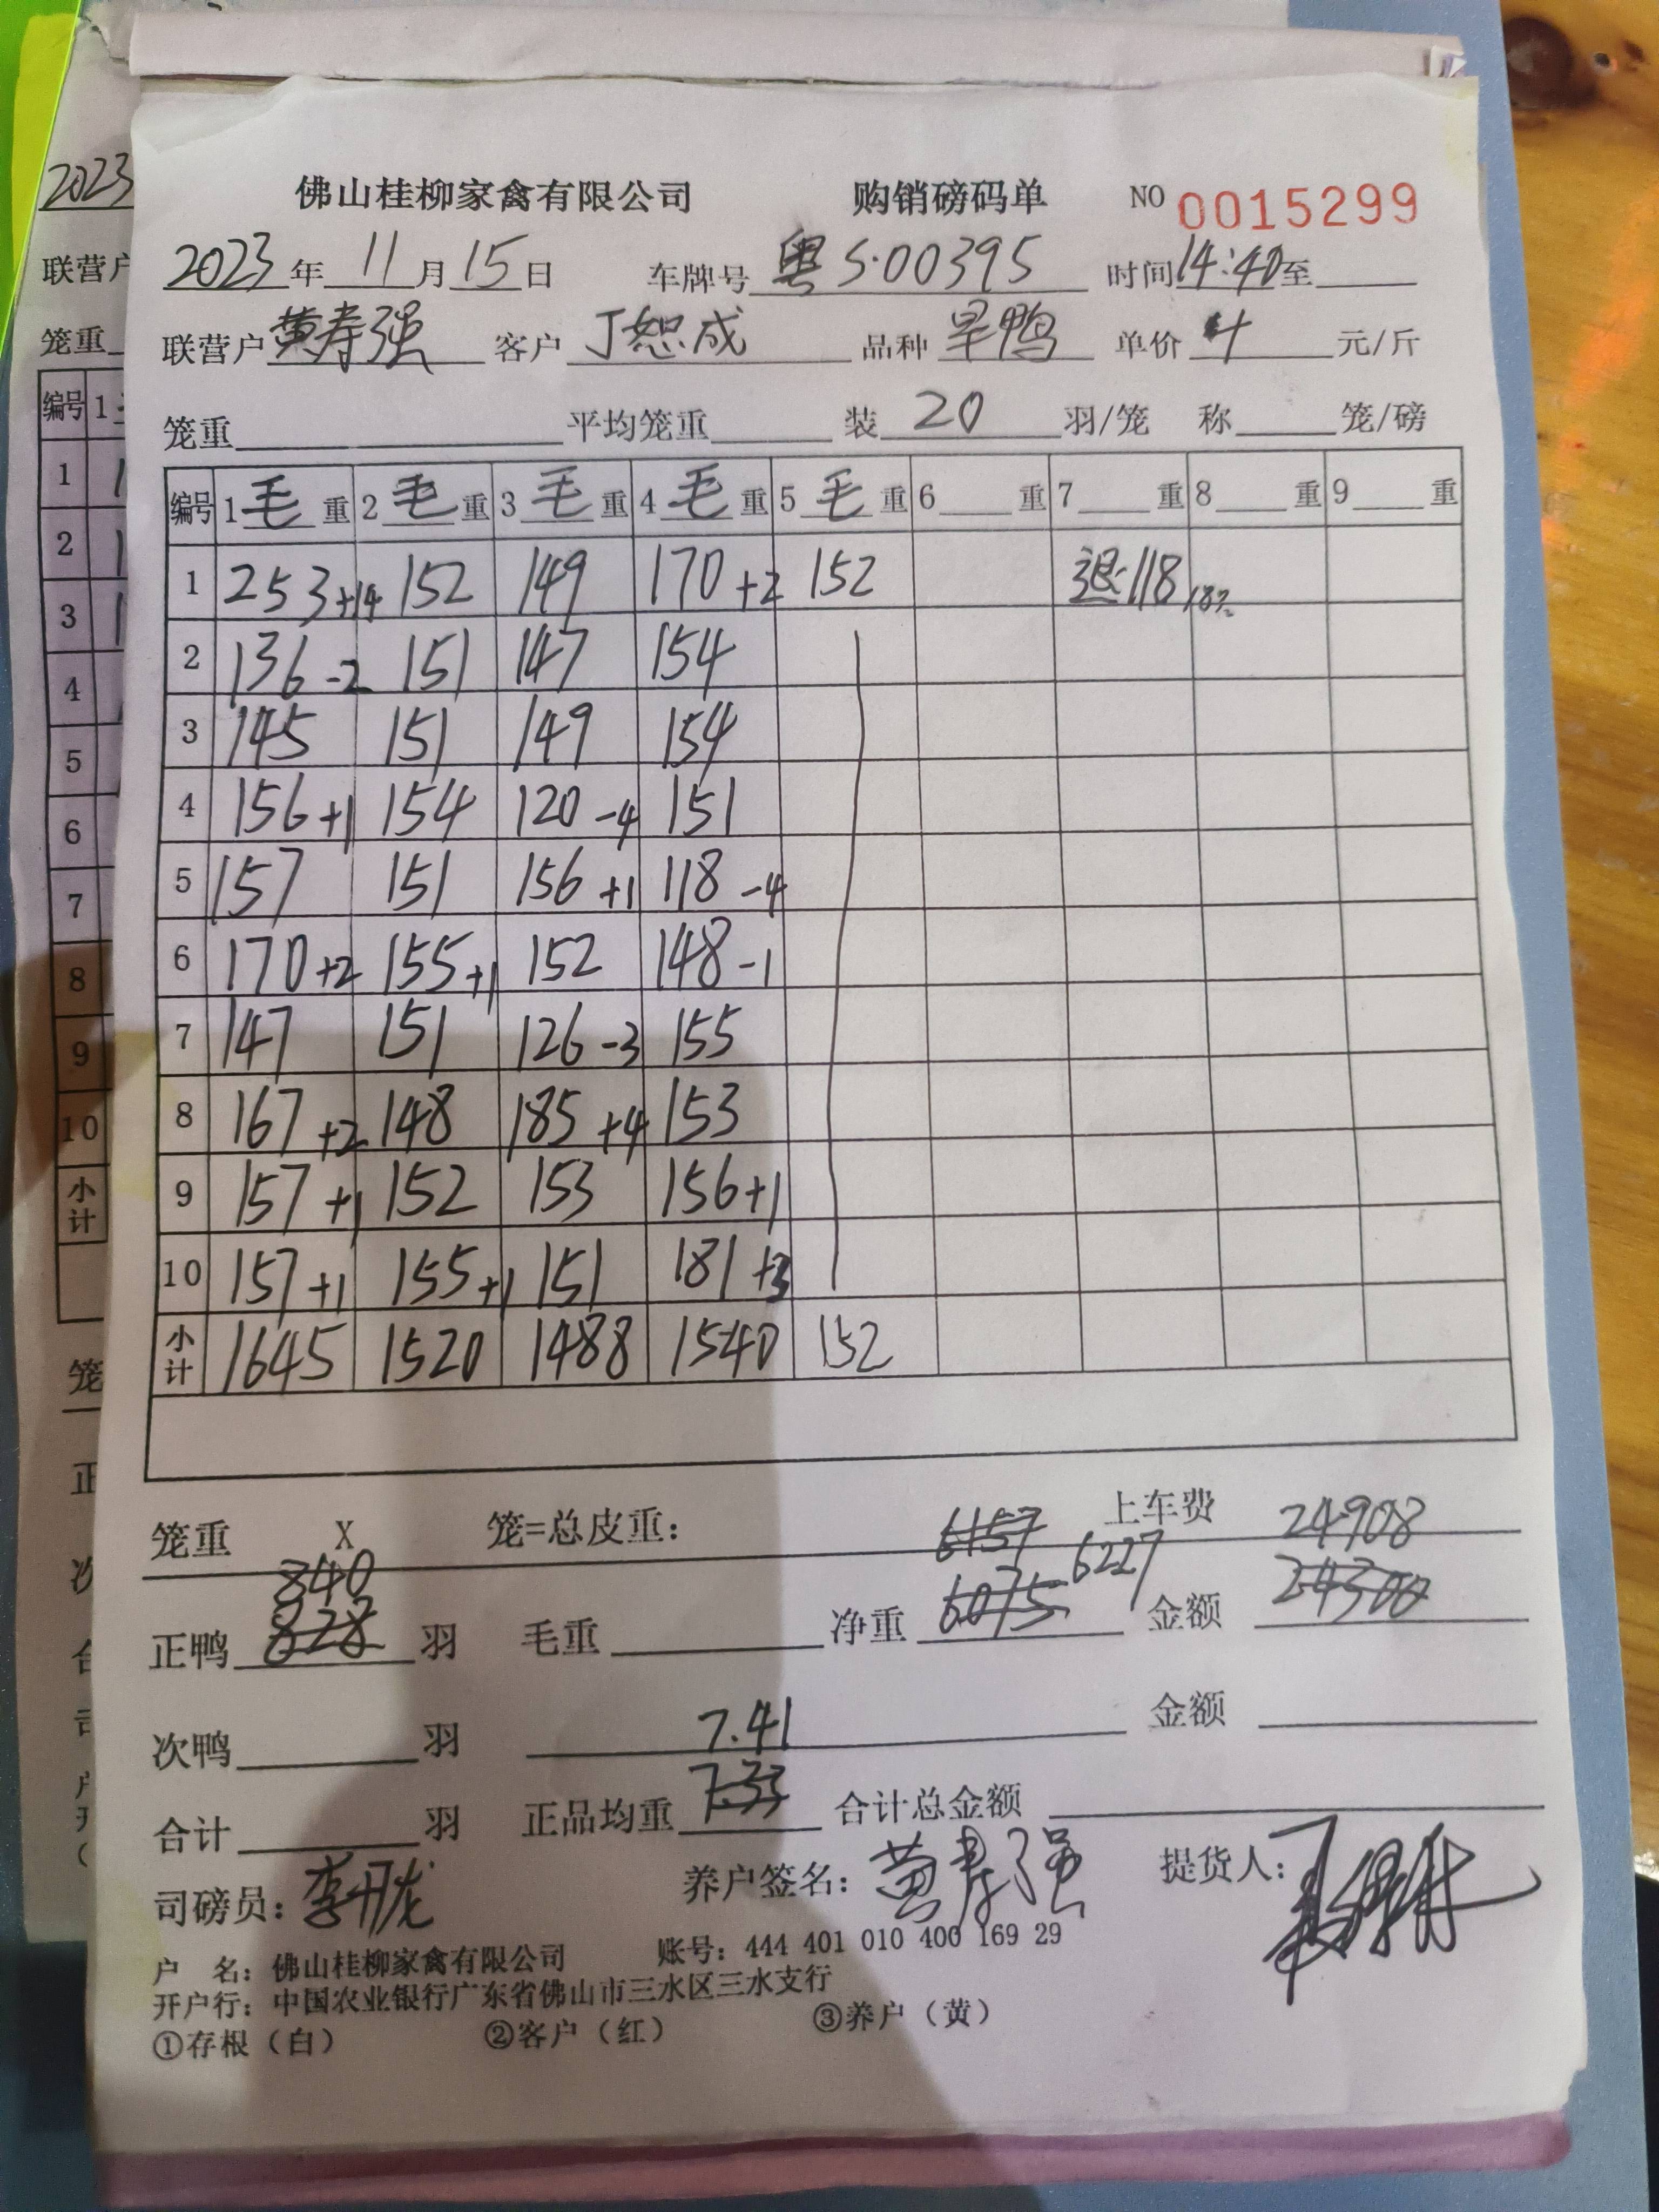 佛山桂柳家禽有限公司 购销磅码单 NO 0015299
2023年11月15日 车牌号 粤S·00395 时间14:40至
联营户 黄寿强 客户 丁恕成 品种 旱鸭 单价 4 元/斤
笼重 平均笼重 装 20 羽/笼 称 笼/磅
编号 1毛重 2毛重 3毛重 4毛重 5毛重 6重 7重 8重 9重
1 253+14 152 149 170+2 152 退118
2 136-2 151 147 154
3 145 151 149 154
4 156+1 154 120-4 151
5 157 151 156+1 118-4
6 170+2 155+1 152 148-1
7 147 151 126-3 155
8 167+2 148 185+4 153
9 157+1 152 153 156+1
10 157+1 155+1 151 181+3
小计 1645 1520 1488 1540 152
笼重 X 笼=总皮重: 6157 上车费 24908
840 6227
正鸭 828 羽 毛重 净重 6075 金额 24300
次鸭 羽 7.41 金额
合计 羽 正品均重 7.33 合计总金额
司磅员: 养户签名: 黄寿强 提货人:
户 名: 佛山桂柳家禽有限公司 账号: 444 401 010 400 169 29
开户行: 中国农业银行广东省佛山市三水区三水支行
①存根（白） ②客户（红） ③养户（黄）
2023
联营户
笼重
编号 1
1
2
3
4
5
6
7
8
9
10
小计
笼